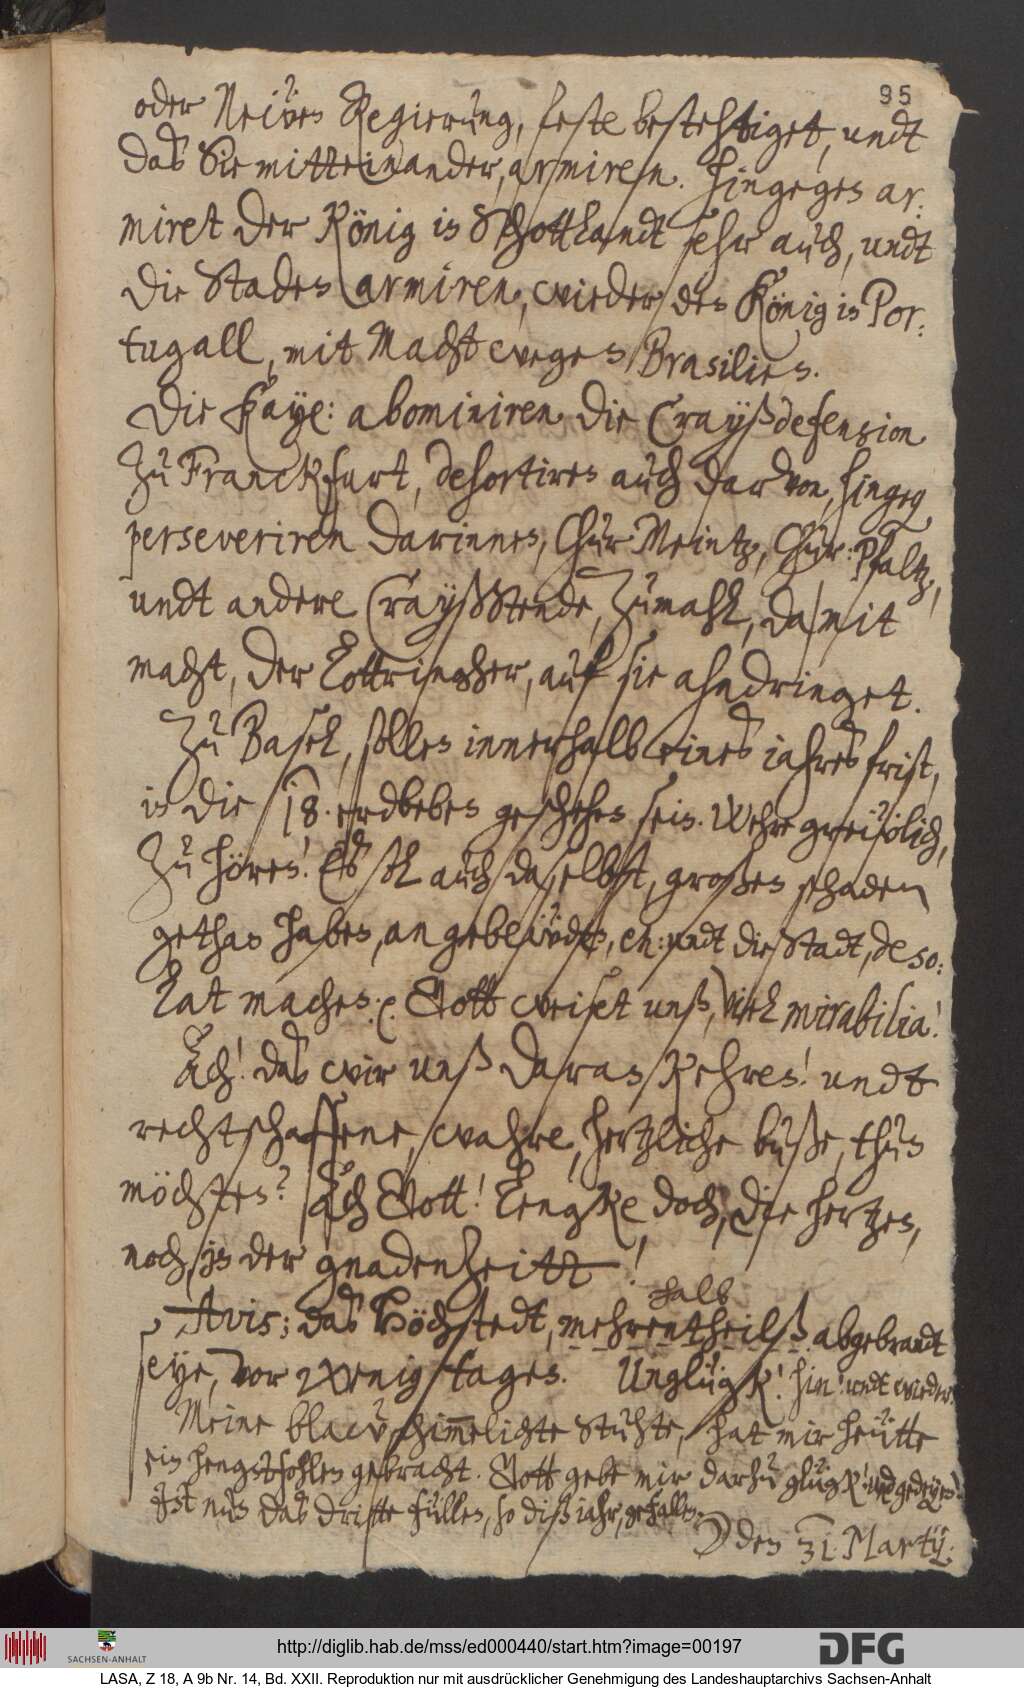 95
oder Neẅen Regierung, feste bestehtiget, undt
das Sie mitteinander, armiren. Hingegen ar:
miret der König in Schottlandt sehr auch, undt
die Staden armiren, wieder den König in Por:
tugall, mit Macht wegen Brasilien.
Die Kaye: abominiren die Crayßdefension
Zu Franckfurt, dehortiren auch darvon, hingeg
perseveriren darinnen, Chur Meintz, Chur: Pfaltz,
undt andere CrayßStende, Zumahl, da mit
macht, der Lottringher, auf sie ahndringet.
Zu Basel, sollen innerhalb eines iahres frist,
in die 18. erdbeben geschehen sein. Wehre grewlich,
Zu hören! Es sol auch daselbst, großen schaden
gethan haben, an gebeẅden, en: undt die Stadt, deso:
lat machen. Gott weiset unß, viel mirabilia!
Ach! das wir unß daran kehren! undt
rechtschaffene, wahre, hertzliche buße, thun
möchten? Ach Gott! Lengke, doch, die hertzen,
noch, in der gnadenzeitt!
halb
Avis: das Höchstedt, mehrentheilß abgebrandt
seye, vor wenig tagen. Unglügk! hin! undt wieder!
Meine blaẅschim̅elichte Stuhte, hat mir heütte
ein hengstfohlen gebracht. Gott gebe mir darzu glügk! und gedeyen!
Ist nun das dritte füllen, so diß iahr, gefallen.
☽ den 31. Martij:
http://diglib.hab.de/mss/ed000440/start.htm?image=00197
SACHSEN-ANHALT
DFG
LASA, Z 18, A 9b Nr. 14, Bd. XXII. Reproduktion nur mit ausdrücklicher Genehmigung des Landeshauptarchivs Sachsen-Anhalt